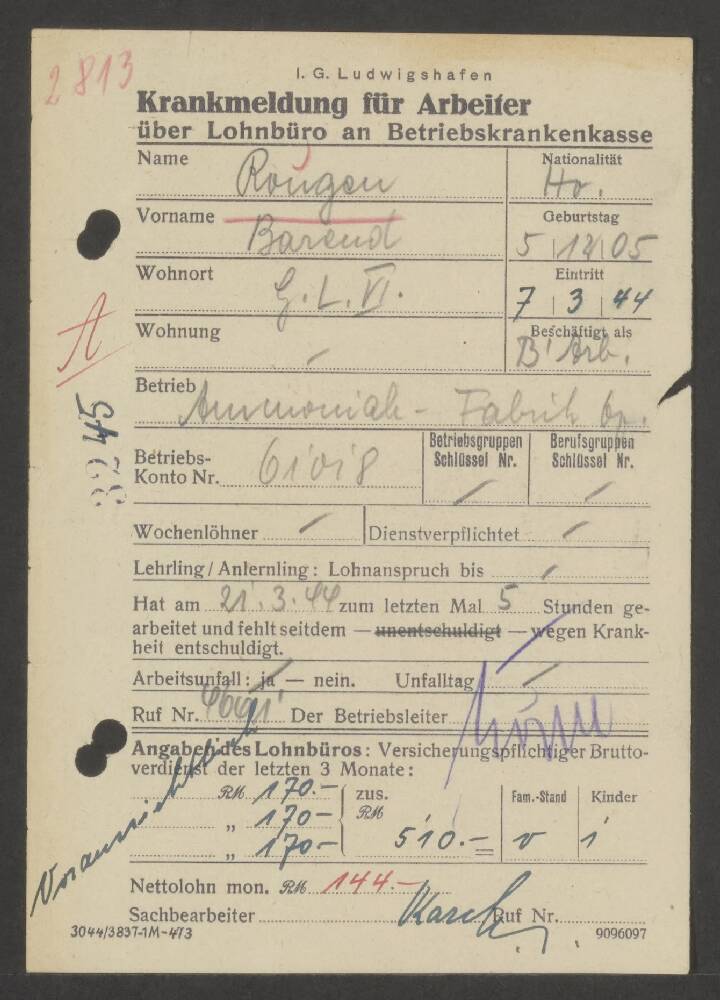 2813
I. G. Ludwigshafen
Krankmeldung für Arbeiter
über Lohnbüro an Betriebskrankenkasse
Name Rougen
Nationalität Ho.
Vorname Barend
Geburtstag 5 12 05
Wohnort G. L. VI.
Eintritt 7 3 44
A
Wohnung –
Beschäftigt als B' Arb.
Betrieb Ammoniak - Fabrik Op.
3245
Betriebs-
Konto Nr. 61018
Betriebsgruppen
Schlüssel Nr. –
Berufsgruppen
Schlüssel Nr. –
Wochenlöhner – Dienstverpflichtet –
Lehrling / Anlernling : Lohnanspruch bis –
Hat am 21. 3. 44 zum letzten Mal 5 Stunden ge-
arbeitet und fehlt seitdem — unentschuldigt — wegen Krank-
heit entschuldigt.
Arbeitsunfall : ja — nein. Unfalltag –
Ruf Nr. Der Betriebsleiter
Angaben des Lohnbüros : Versicherungspflichtiger Brutto-
verdienst der letzten 3 Monate :
RM 170.- zus.
„ 170- RM 510.-
„ 170-
Fam.-Stand v
Kinder 1
Voraussichtlich
Nettolohn mon. RM 144.-
Sachbearbeiter Karch Ruf Nr.
3044/3837-1M-473
9096097